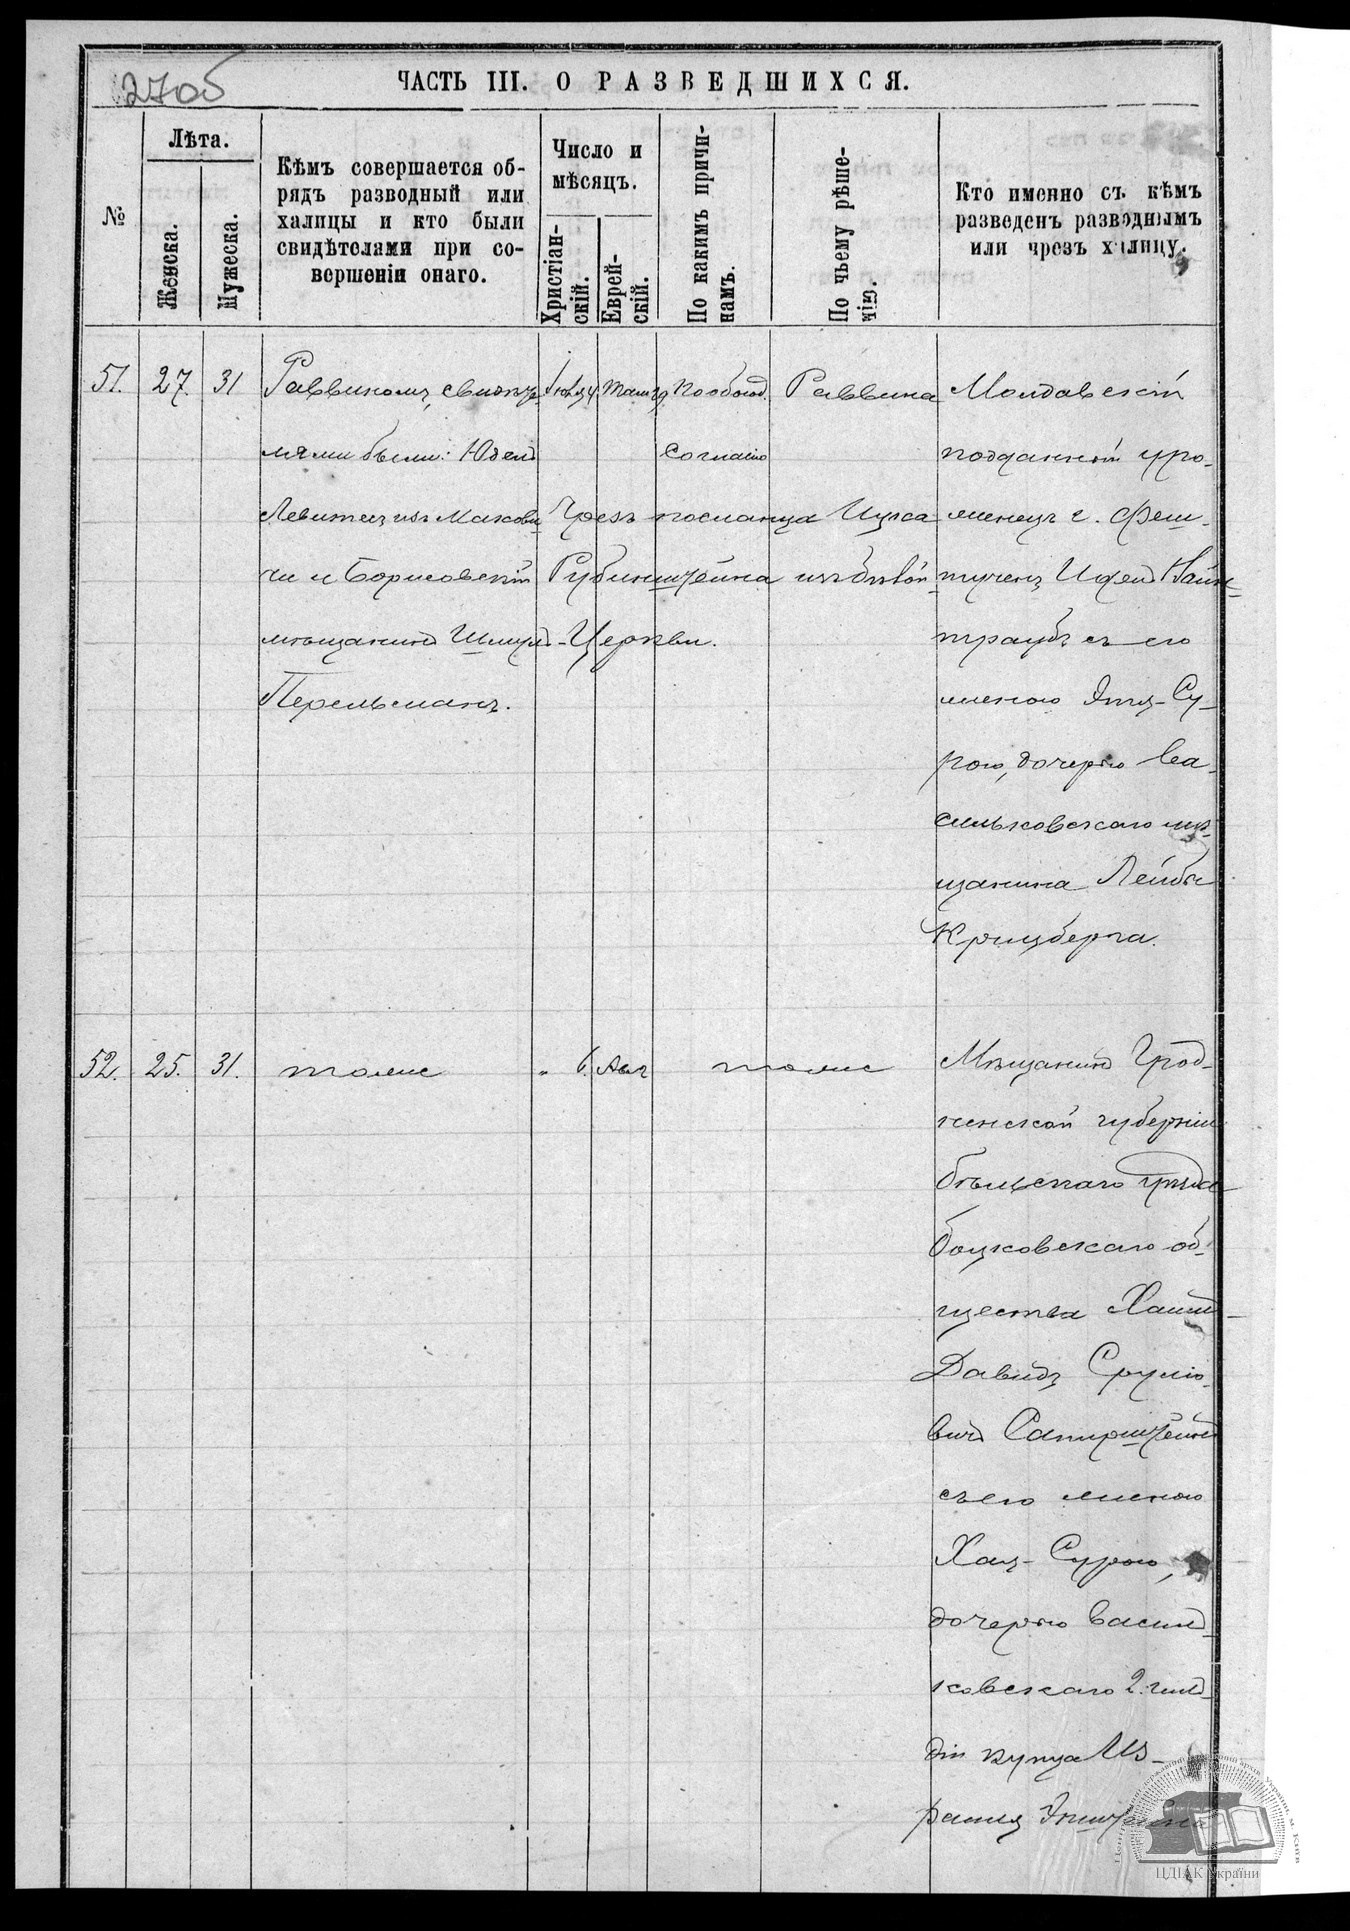 270б
ЧАСТЬ III. О РАЗВЕДШИХСЯ.
№
Лѣта.
Женска.
Мужеска.
Кѣмъ совершается об-
рядъ разводный или
халицы и кто были
свидѣтелями при со-
вершеніи онаго.
Число и
мѣсяцъ.
Христіан-
скій.
Еврей-
скій.
По какимъ причи-
намъ.
По чьему рѣше-
нію.
Кто именно съ кѣмъ
разведенъ разводнымъ
или чрезъ халицу.
51. 27. 31 Раввиномъ, свидѣте-
лями были: Юдель
Левитъ изъ
и Борисовскій
мѣщанинъ Шмуль
Перельманъ.
4. 19 По обоюд.
согласію
Раввина
Чрезъ посланца Ицка
Рубинштейна изъ Бѣлой-
Церкви.
Молдавскій
подданный уро-
женецъ г.
Вайн-
траубъ съ его
женою Этя-Су-
рою, дочерью Ва-
сильковскаго мѣ-
щанина Лейбы
52. 25. 31. тоже " 6. Авг тоже
Мѣщанинъ Грод-
ненской губерніи
Бѣльскаго уѣзда
Боцковскаго об-
щества Хаим-
Давидъ Срулю-
вичъ Сапирштейнъ
съ его женою
Хая-Сурою,
дочерью Василь-
ковскаго 2. гиль-
діи купца Из-
раиля Эпштейна
ЦДІАК України